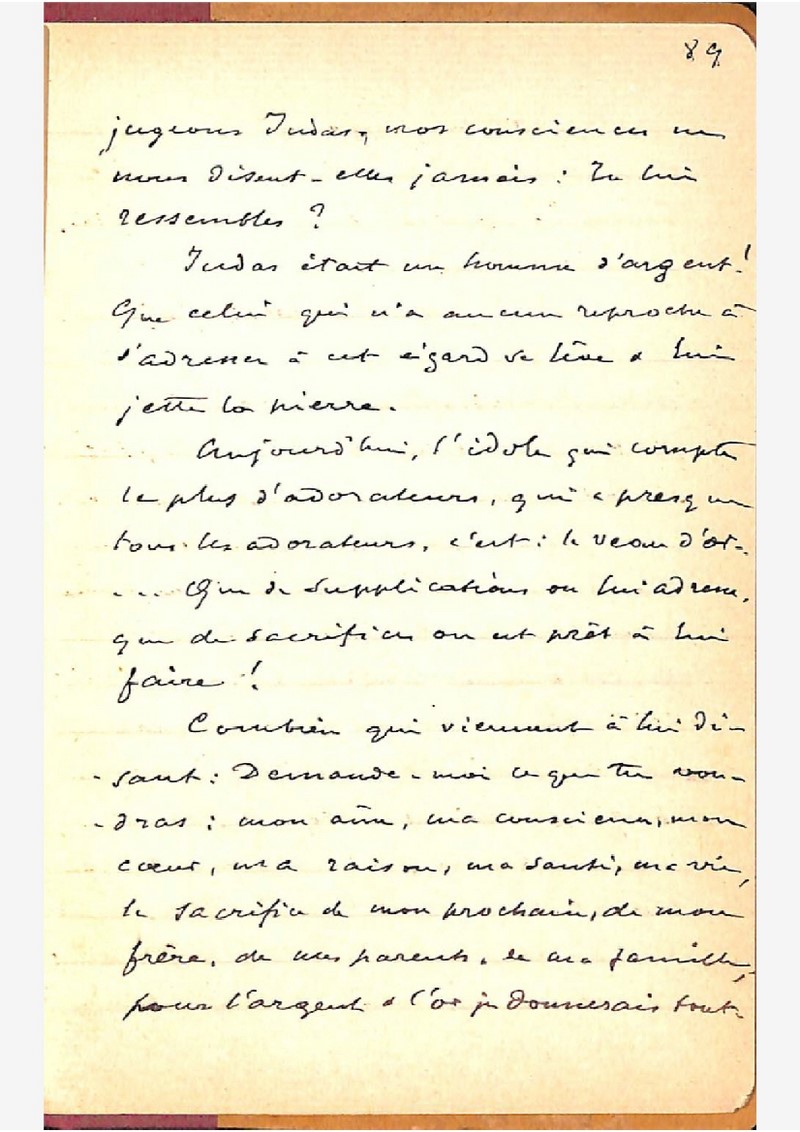 89
jugeons Judas, nos consciences ne
nous disent-elles jamais : Tu lui
ressembles ?
Judas était un homme d'argent !
Que celui qui n'a aucun reproche à
s'adresser à cet égard se lève & lui
jette la pierre.
Aujourd'hui, l'idole qui compte
le plus d'adorateurs, qui a presque
tous les adorateurs, c'est : le veau d'or.
... Que de supplications on lui adresse,
que de sacrifices on est prêt à lui
faire !
Combien qui viennent à lui di-
-sant : Demande-moi ce que tu vou-
-dras : mon âme, ma conscience, mon
cœur, ma raison, ma santé, ma vie,
le sacrifice de mon prochain, de mon
frère, de mes parents, de ma famille,
pour l'argent & l'or je donnerais tout.